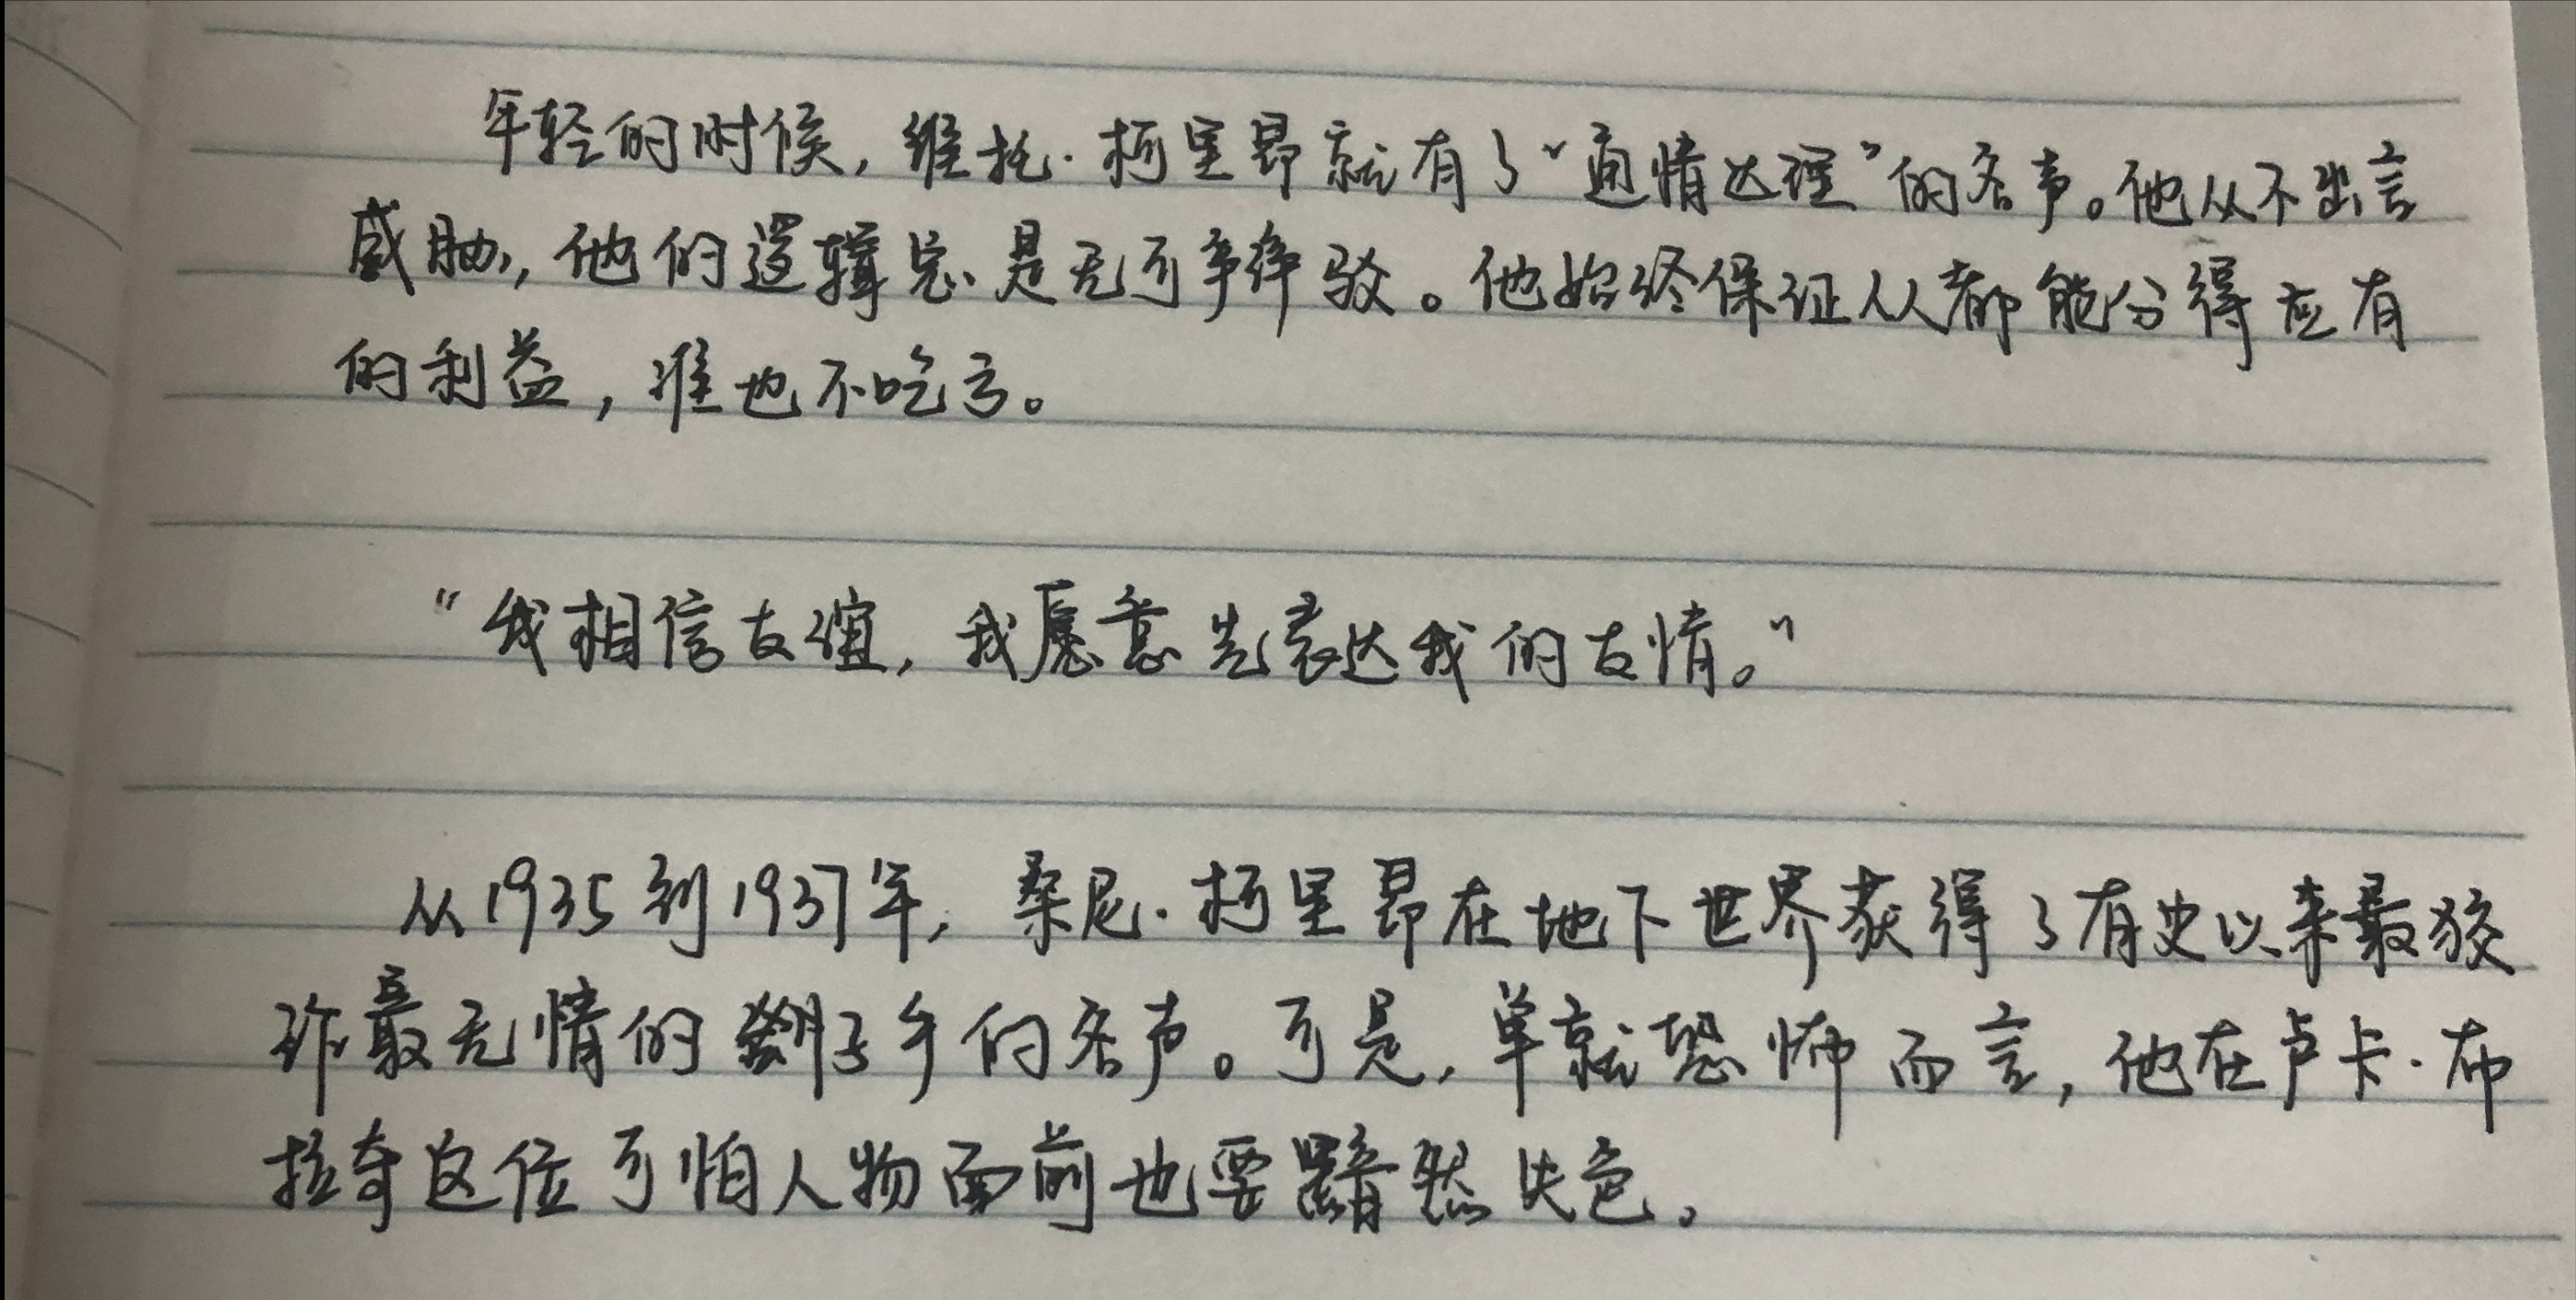 年轻的时候，维托·柯里昂就有了“通情达理”的名声。他从不出言
威胁，他的逻辑总是无可争辩驳。他始终保证人人都能分得应有
的利益，谁也不吃亏。
“我相信友谊，我愿意先表达我的友情。”
从1935到1937年，桑尼·柯里昂在地下世界获得了有史以来最狡
诈最无情的刽子手的名声。可是，单就恐怖而言，他在卢卡·布
拉奇这位可怕人物面前也要黯然失色。